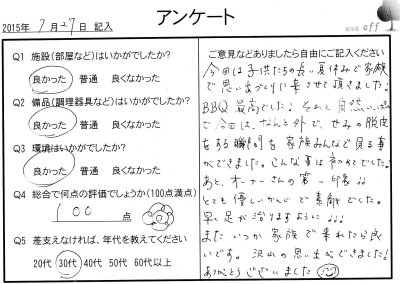 アンケート
2015年 7月27日 記入
off
Q1 施設(部屋など)はいかがでしたか?
良かった 普通 良くなかった
Q2 備品(調理器具など)はいかがでしたか?
良かった 普通 良くなかった
Q3 環境はいかがでしたか?
良かった 普通 良くなかった
Q4 総合で何点の評価でしょうか(100点満点)
100 点
Q5 差支えなければ、年代を教えてください
20代 30代 40代 50代 60代以上
ご意見などありましたら自由にご記入ください
今回は子供たちの長い夏休みで家族
で思い出づくりに来させて頂きました!
BBQ最高でした! それと自然いっぱい
で今回は、なんと外で、せみの脱皮
をする瞬間を家族みんなで見る事
ができました。こんな事は初めてでした。
あと、オーナーさんの第一印象!!
とても優しいかんじで素敵でした。
早く足が治りますように!!!
またいつか家族で来れたら良
いです。沢山の思い出ができました!
ありがとうございました